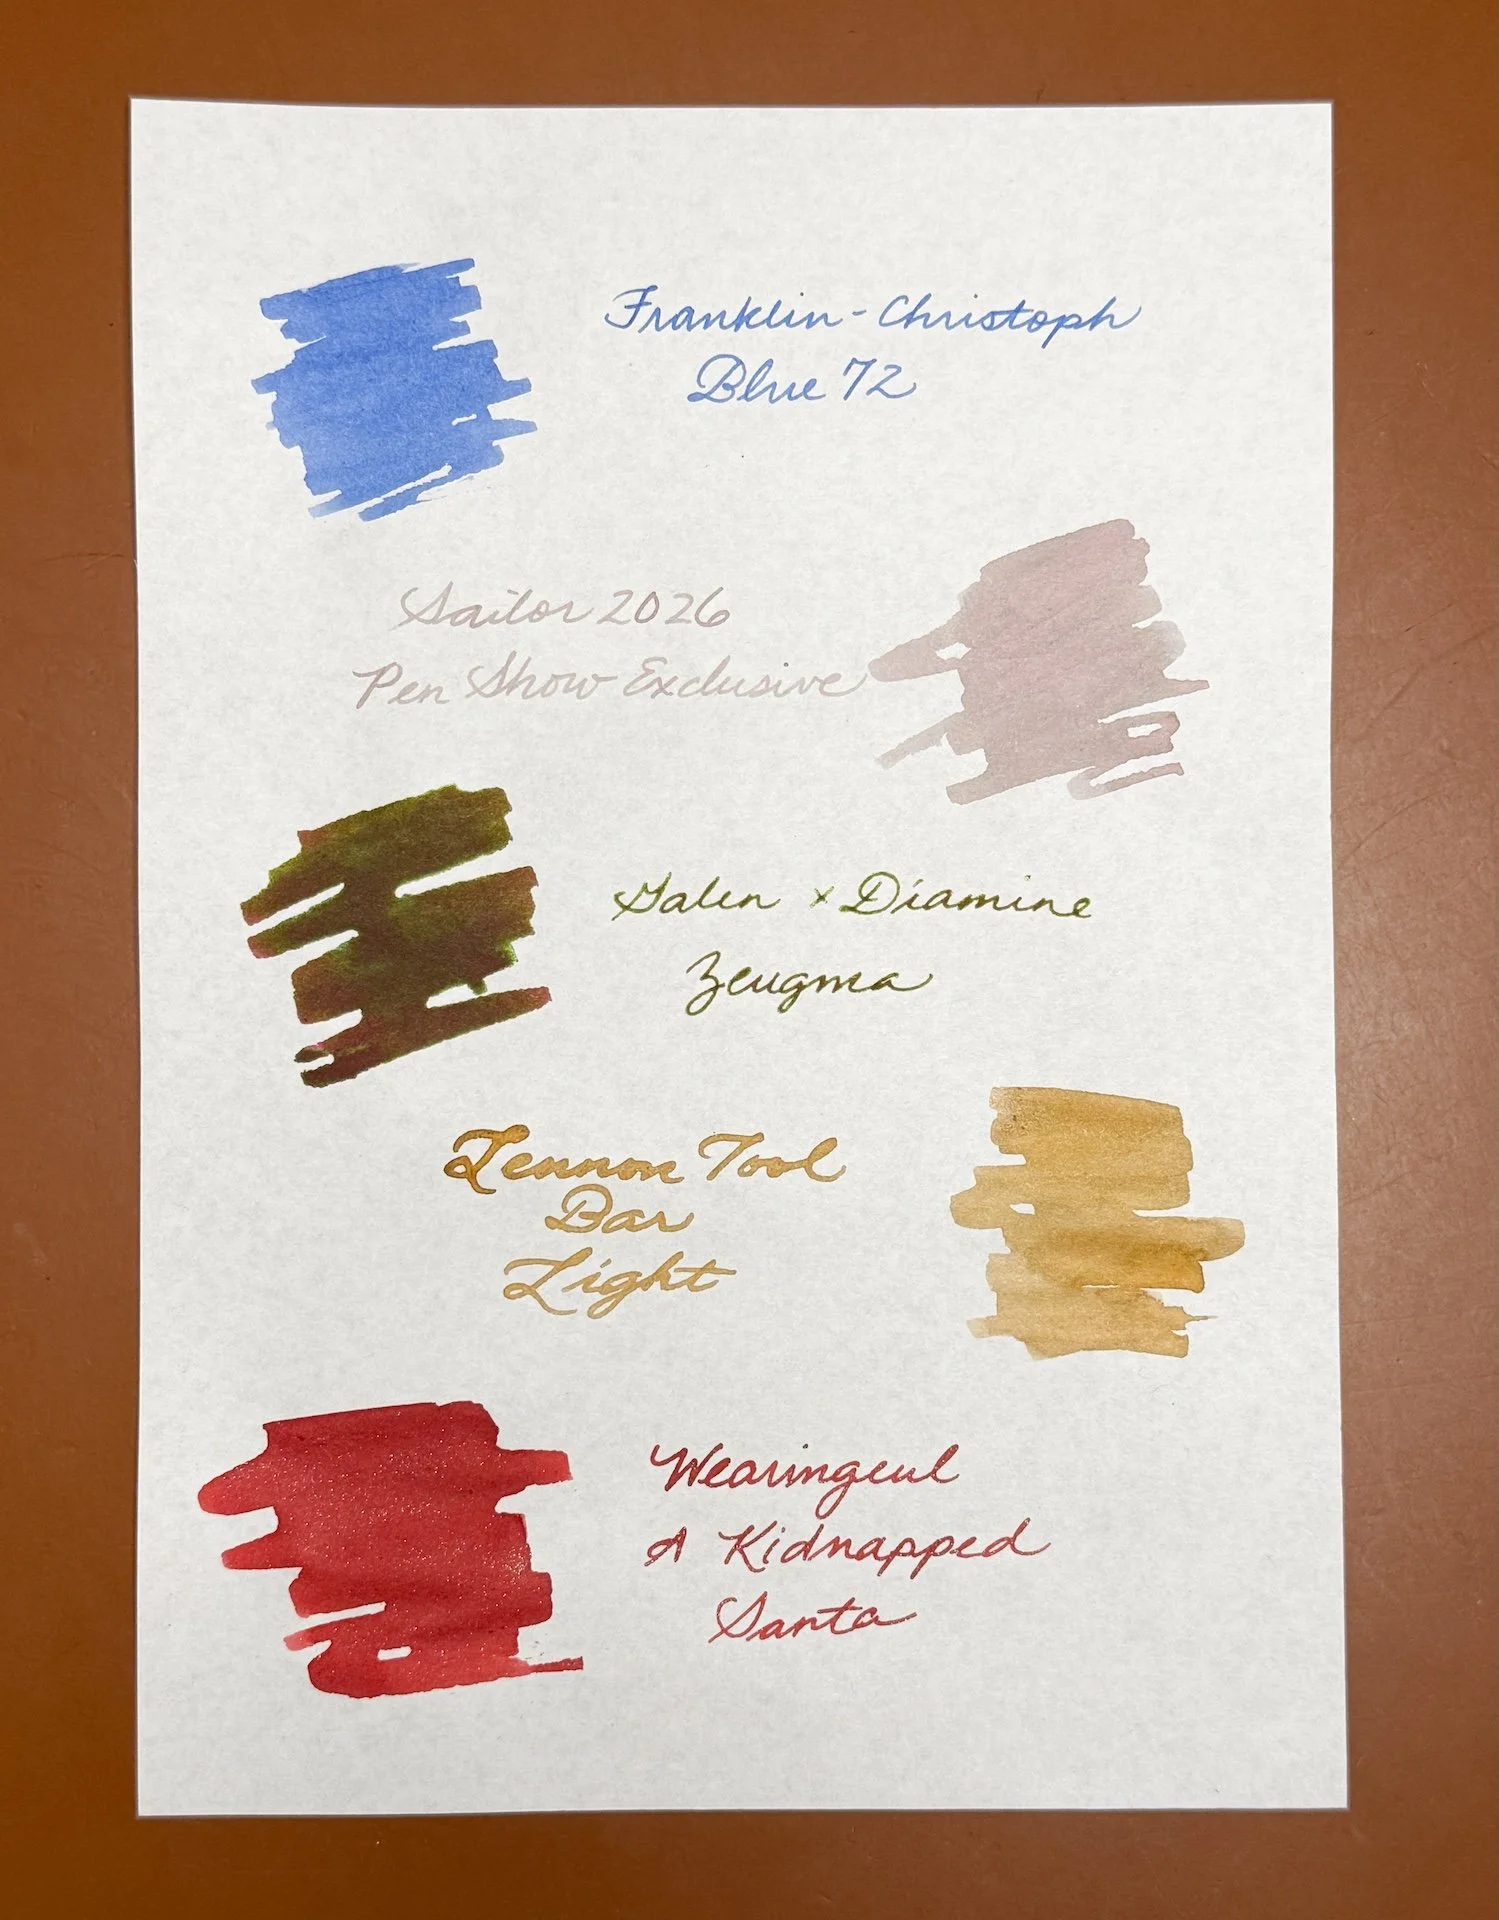 Franklin-Christoph
Blue 72
Sailor 2026
Pen Show Exclusive
Galen x Diamine
Zeugma
Lennon Tool
Bar
Light
Wearingeul
A Kidnapped
Santa